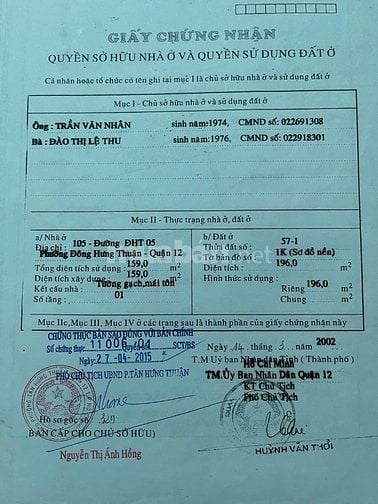 GIẤY CHỨNG NHẬN
QUYỀN SỞ HỮU NHÀ Ở VÀ QUYỀN SỬ DỤNG ĐẤT Ở
Cá nhân hoặc tổ chức có tên ghi tại mục I là chủ sở hữu nhà ở và sử dụng đất ở
Mục I - Chủ sở hữu nhà ở và sử dụng đất ở
Ông : TRẦN VĂN NHÂN sinh năm:1974, CMND số: 022691308
Bà : ĐÀO THỊ LỆ THU sinh năm:1976, CMND số: 022918301
Mục II - Thực trạng nhà ở, đất ở
a/ Nhà ở
Địa chỉ : 105 - Đường ĐHT 05
Phường Đông Hưng Thuận - Quận 12
Tổng diện tích sử dụng : 159,0 m2
Diện tích xây dựng : 159,0 m2
Kết cấu nhà : Tường gạch,mái tôn
Số tầng : 01
b/ Đất ở
Thửa đất số : 57-1
Tờ bản đồ số : 1K (Sơ đồ nền)
Diện tích : 196,0 m2
Hình thức sử dụng :
Riêng 196,0 m2
Chung m2
Mục IIc, Mục III, Mục IV ở các trang sau là thành phần của giấy chứng nhận này
CHỨNG THỰC BẢN SAO ĐÚNG VỚI BẢN CHÍNH
Số chứng thực 11006 Quyển số 01 SCT/BS
Ngày 27 -04- 2015
PHÓ CHỦ TỊCH UBND P.TÂN HƯNG THUẬN
Hồ sơ gốc số 329
(BẢN CẤP CHO CHỦ SỞ HỮU)
Nguyễn Thị Ánh Hồng
Ngày 14 2002
T.M Ủy ban nhân dân Tỉnh (Thành phố)
Hồ Chí Minh
TM.Ủy Ban Nhân Dân Quận 12
KT Chủ Tịch
Phó Chủ Tịch
HUỲNH VĂN THỚI